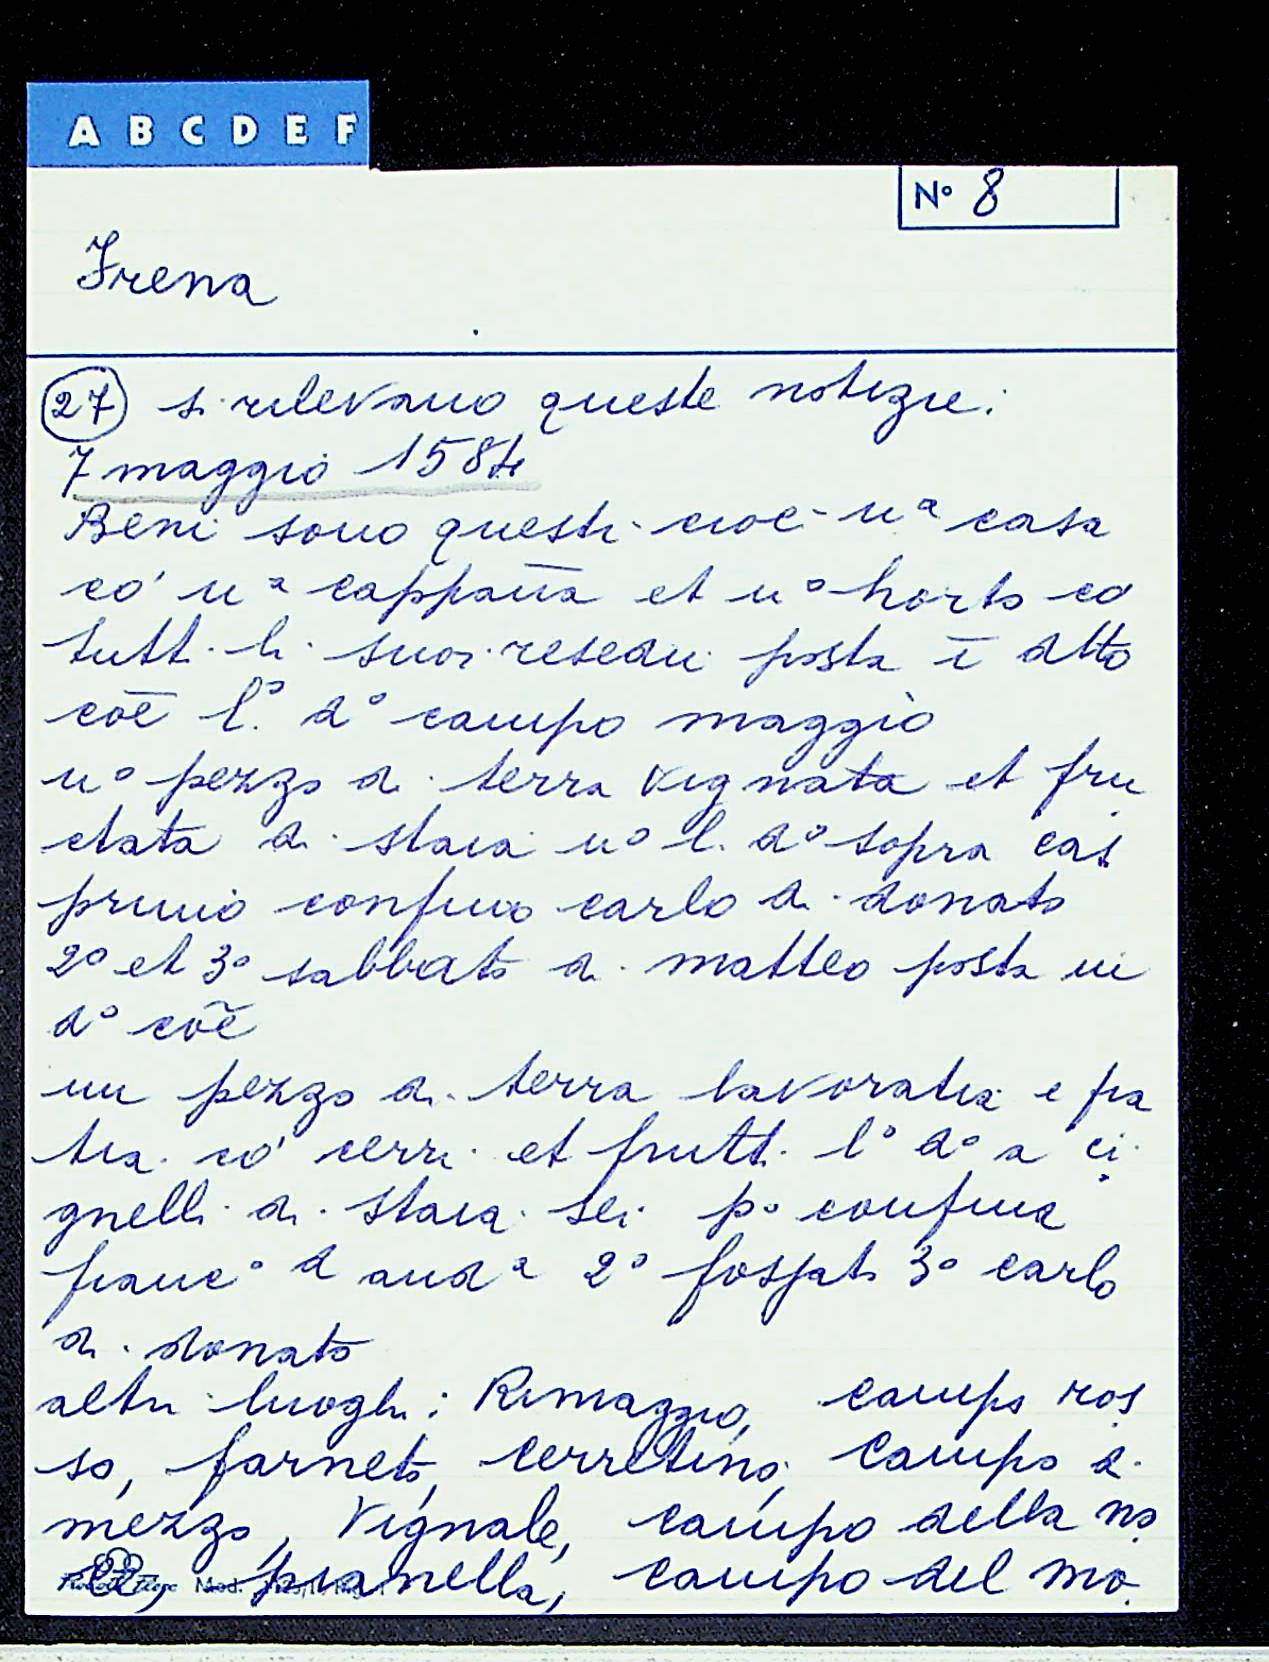 A B C D E F
Nº 8
Frena
27 si rilevano queste notizie:
7 maggio 1584
Beni sono questi cioe uª casa
co' uª cappañа et uº horto co
tutti li suoi resedii posta ī dtto
coē l.º dº campo maggio
uº pezzo di terra vignata et fru
ctata di staia uº l. dº sopra cas
primo confino carlo di donato
2º et 3º sabbato di matteo posta in
dº coē
un pezzo di terra lavoratia e pra
tia co' cerri et frutti lº dº a ci
gnelli di staia sei pº confina
francº d andª 2º fossati 3º carlo
di donato
altri luoghi: Rimaggio, campo ros
so, farneto, cerretino, campo di
mezzo, Vignale, campo della no
ce, pianella, campo del mo
Mod.